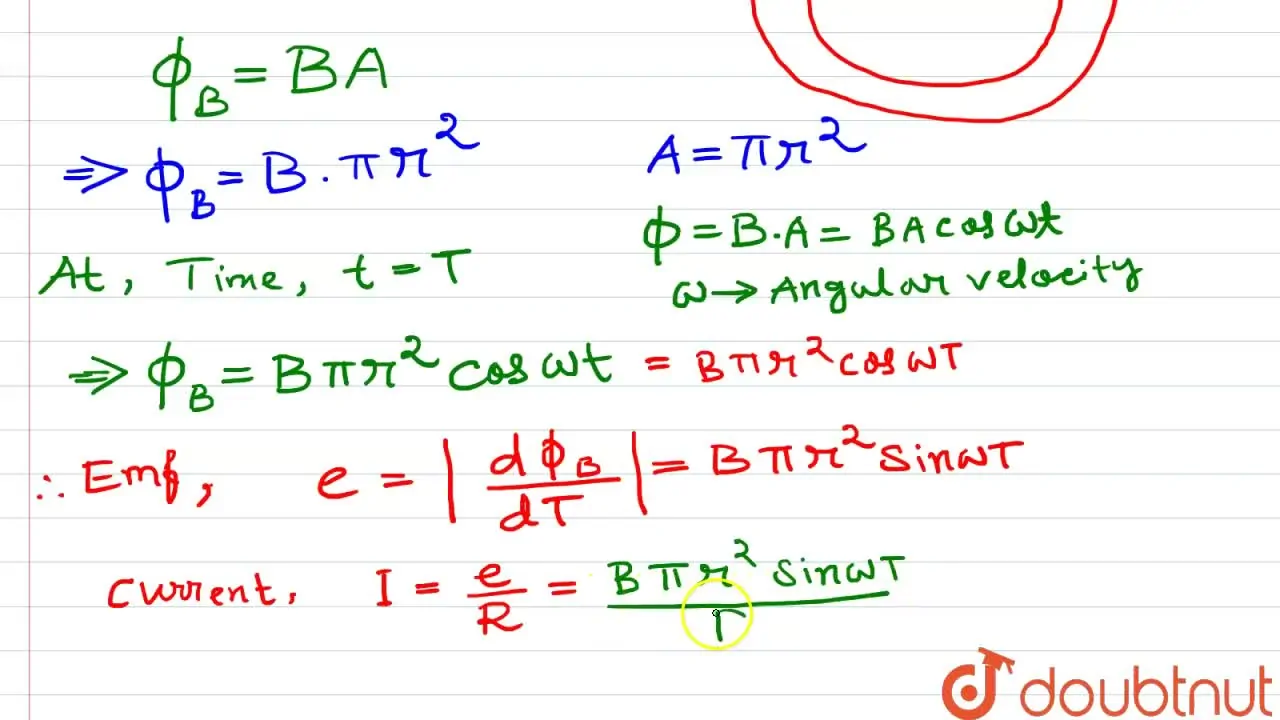 ϕ_B = BA
⇒ ϕ_B = B . πr²
A = πr²
ϕ = B.A = BA cos ωt
ω → Angular velocity
At, Time, t = T
⇒ ϕ_B = Bπr² cos ωt = Bπr² cos ωT
∴ Emf, e = | dϕ_B / dT | = Bπr² sin ωT
Current, I = e/R = Bπr² sin ωT /
doubtnut